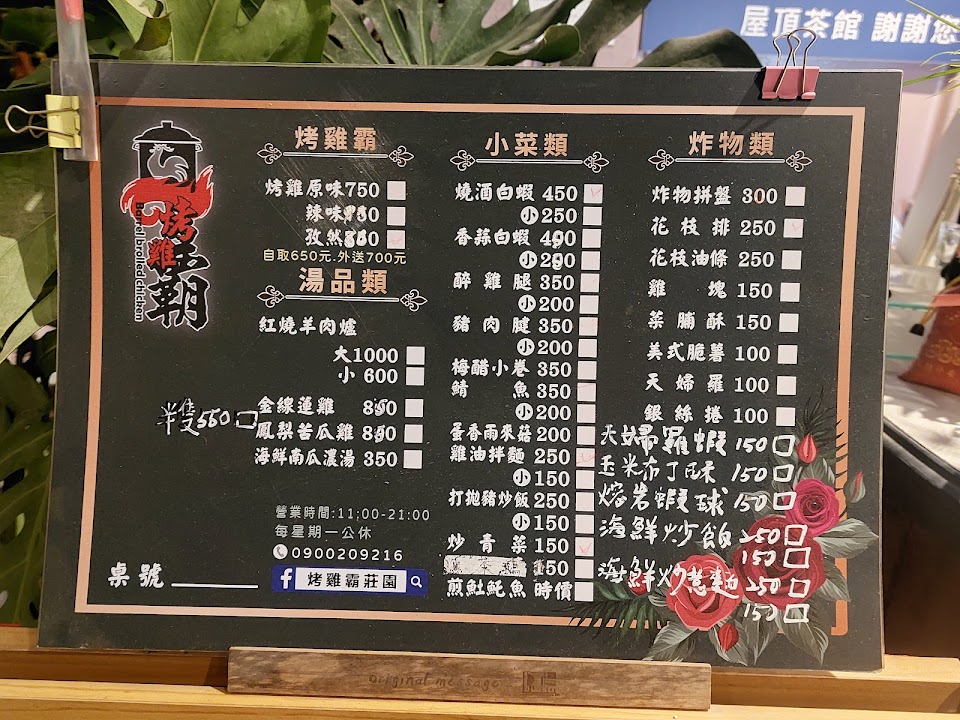 屋頂茶館 謝謝您
烤雞霸
Barrel broiled chicken
烤雞霸
烤雞原味750
辣味
孜然
自取650元.外送700元
湯品類
紅燒羊肉爐
大1000
小 600
金線蓮雞
半隻550
鳳梨苦瓜雞
海鮮南瓜濃湯 350
營業時間:11:00-21:00
每星期一公休
0900209216
桌號
f 烤雞霸莊園
小菜類
燒酒白蝦 450
小 250
香蒜白蝦
小
醉雞腿 350
小 200
豬肉腱 350
小 200
梅醋小卷 350
鯖魚 350
小 200
蛋香雨來菇 200
雞油拌麵 250
小 150
打拋豬炒飯 250
小 150
炒青菜 150
150
煎虱魠魚 時價
炸物類
炸物拼盤 300
花枝排 250
花枝油條 250
雞塊 150
菜脯酥 150
美式脆薯 100
天婦羅 100
銀絲捲 100
天婦羅蝦 150
玉米布丁酥 150
熔岩蝦球 150
海鮮炒飯 250
150
海鮮炒意麵 250
150
original message